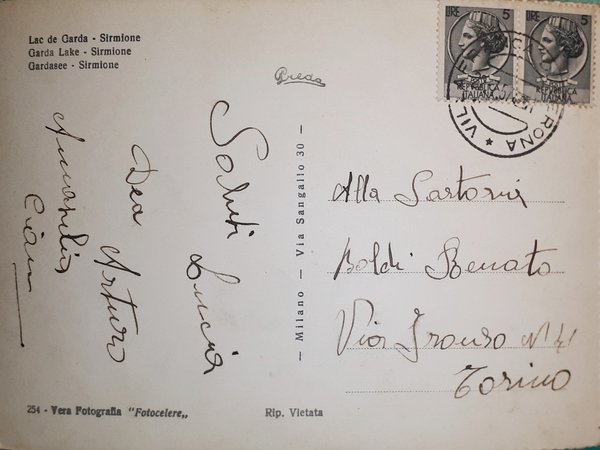 Lac de Garda - Sirmione
Garda Lake - Sirmione
Gardasee - Sirmione
Preda
LIRE 5
REPUBBLICA
ITALIANA
LIRE 5
REPUBBLICA
ITALIANA
VERONA
Saluti
Lucia
Dea Arturo
— Milano — Via Sangallo 30 —
Alla Sartoria
Boldi Renato
Via Isonzo N° 41
Torino
254 - Vera Fotografia "Fotocelere„
Rip. Vietata